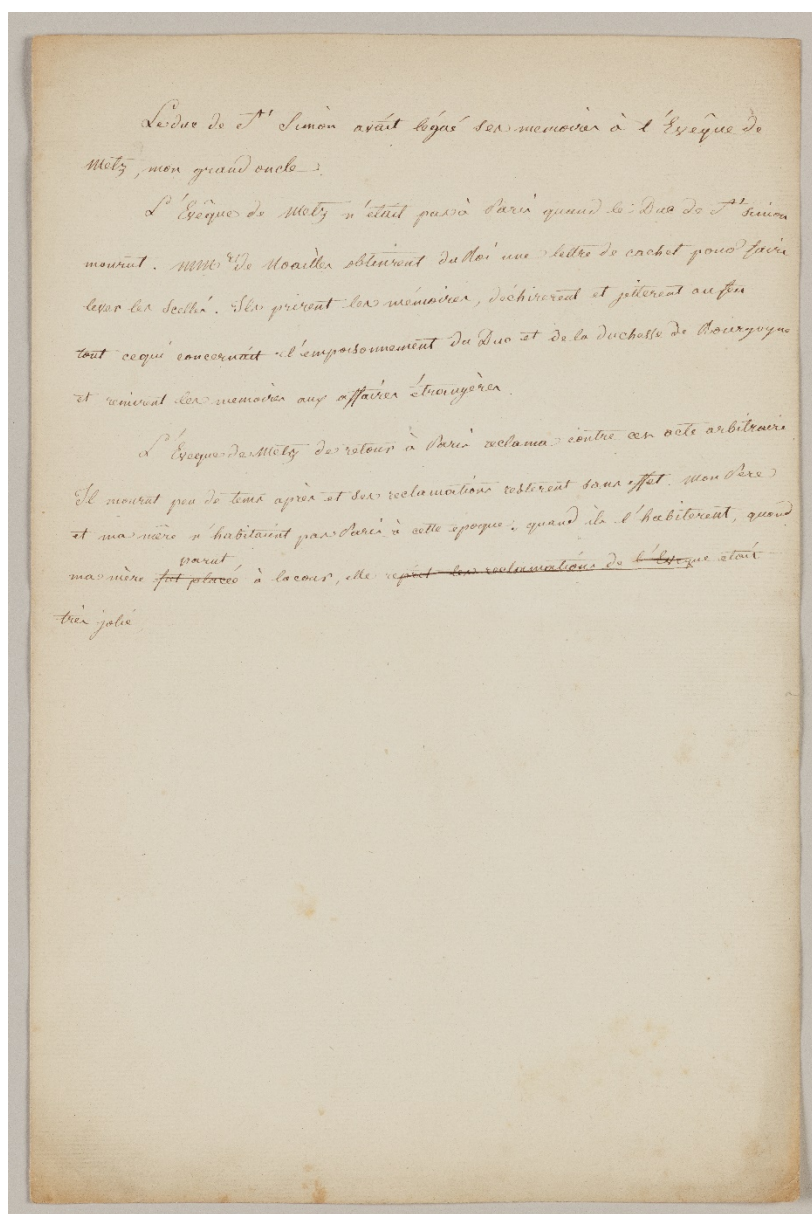 Le duc de St Simon avait légué ses memoires à l'Evêque de
Metz, mon grand oncle.
L'Evêque de Metz n'était pas à Paris quand le Duc de St Simon
mourut. MMrs de Noailles obtinrent du Roi une lettre de cachet pour faire
lever les Scellés. Ils prirent les mémoires, déchirerent et jetterent au feu
tout cequi concernait l'empoisonnement du Duc et de la duchesse de Bourgogne
et remirent les memoires aux affaires étrangères.
L'Eveque de Metz de retour à Paris reclama contre ces acte arbitraire
Il mourut peu de tems après et ses reclamations resterent sans effet. Mon Pere
et ma mère n'habitaient pas Paris à cette epoque. quand ils l'habiterent, quand
parut
ma mère fut placée à lacour, elle reprit les reclamations de l'Eveque etait
très jolie